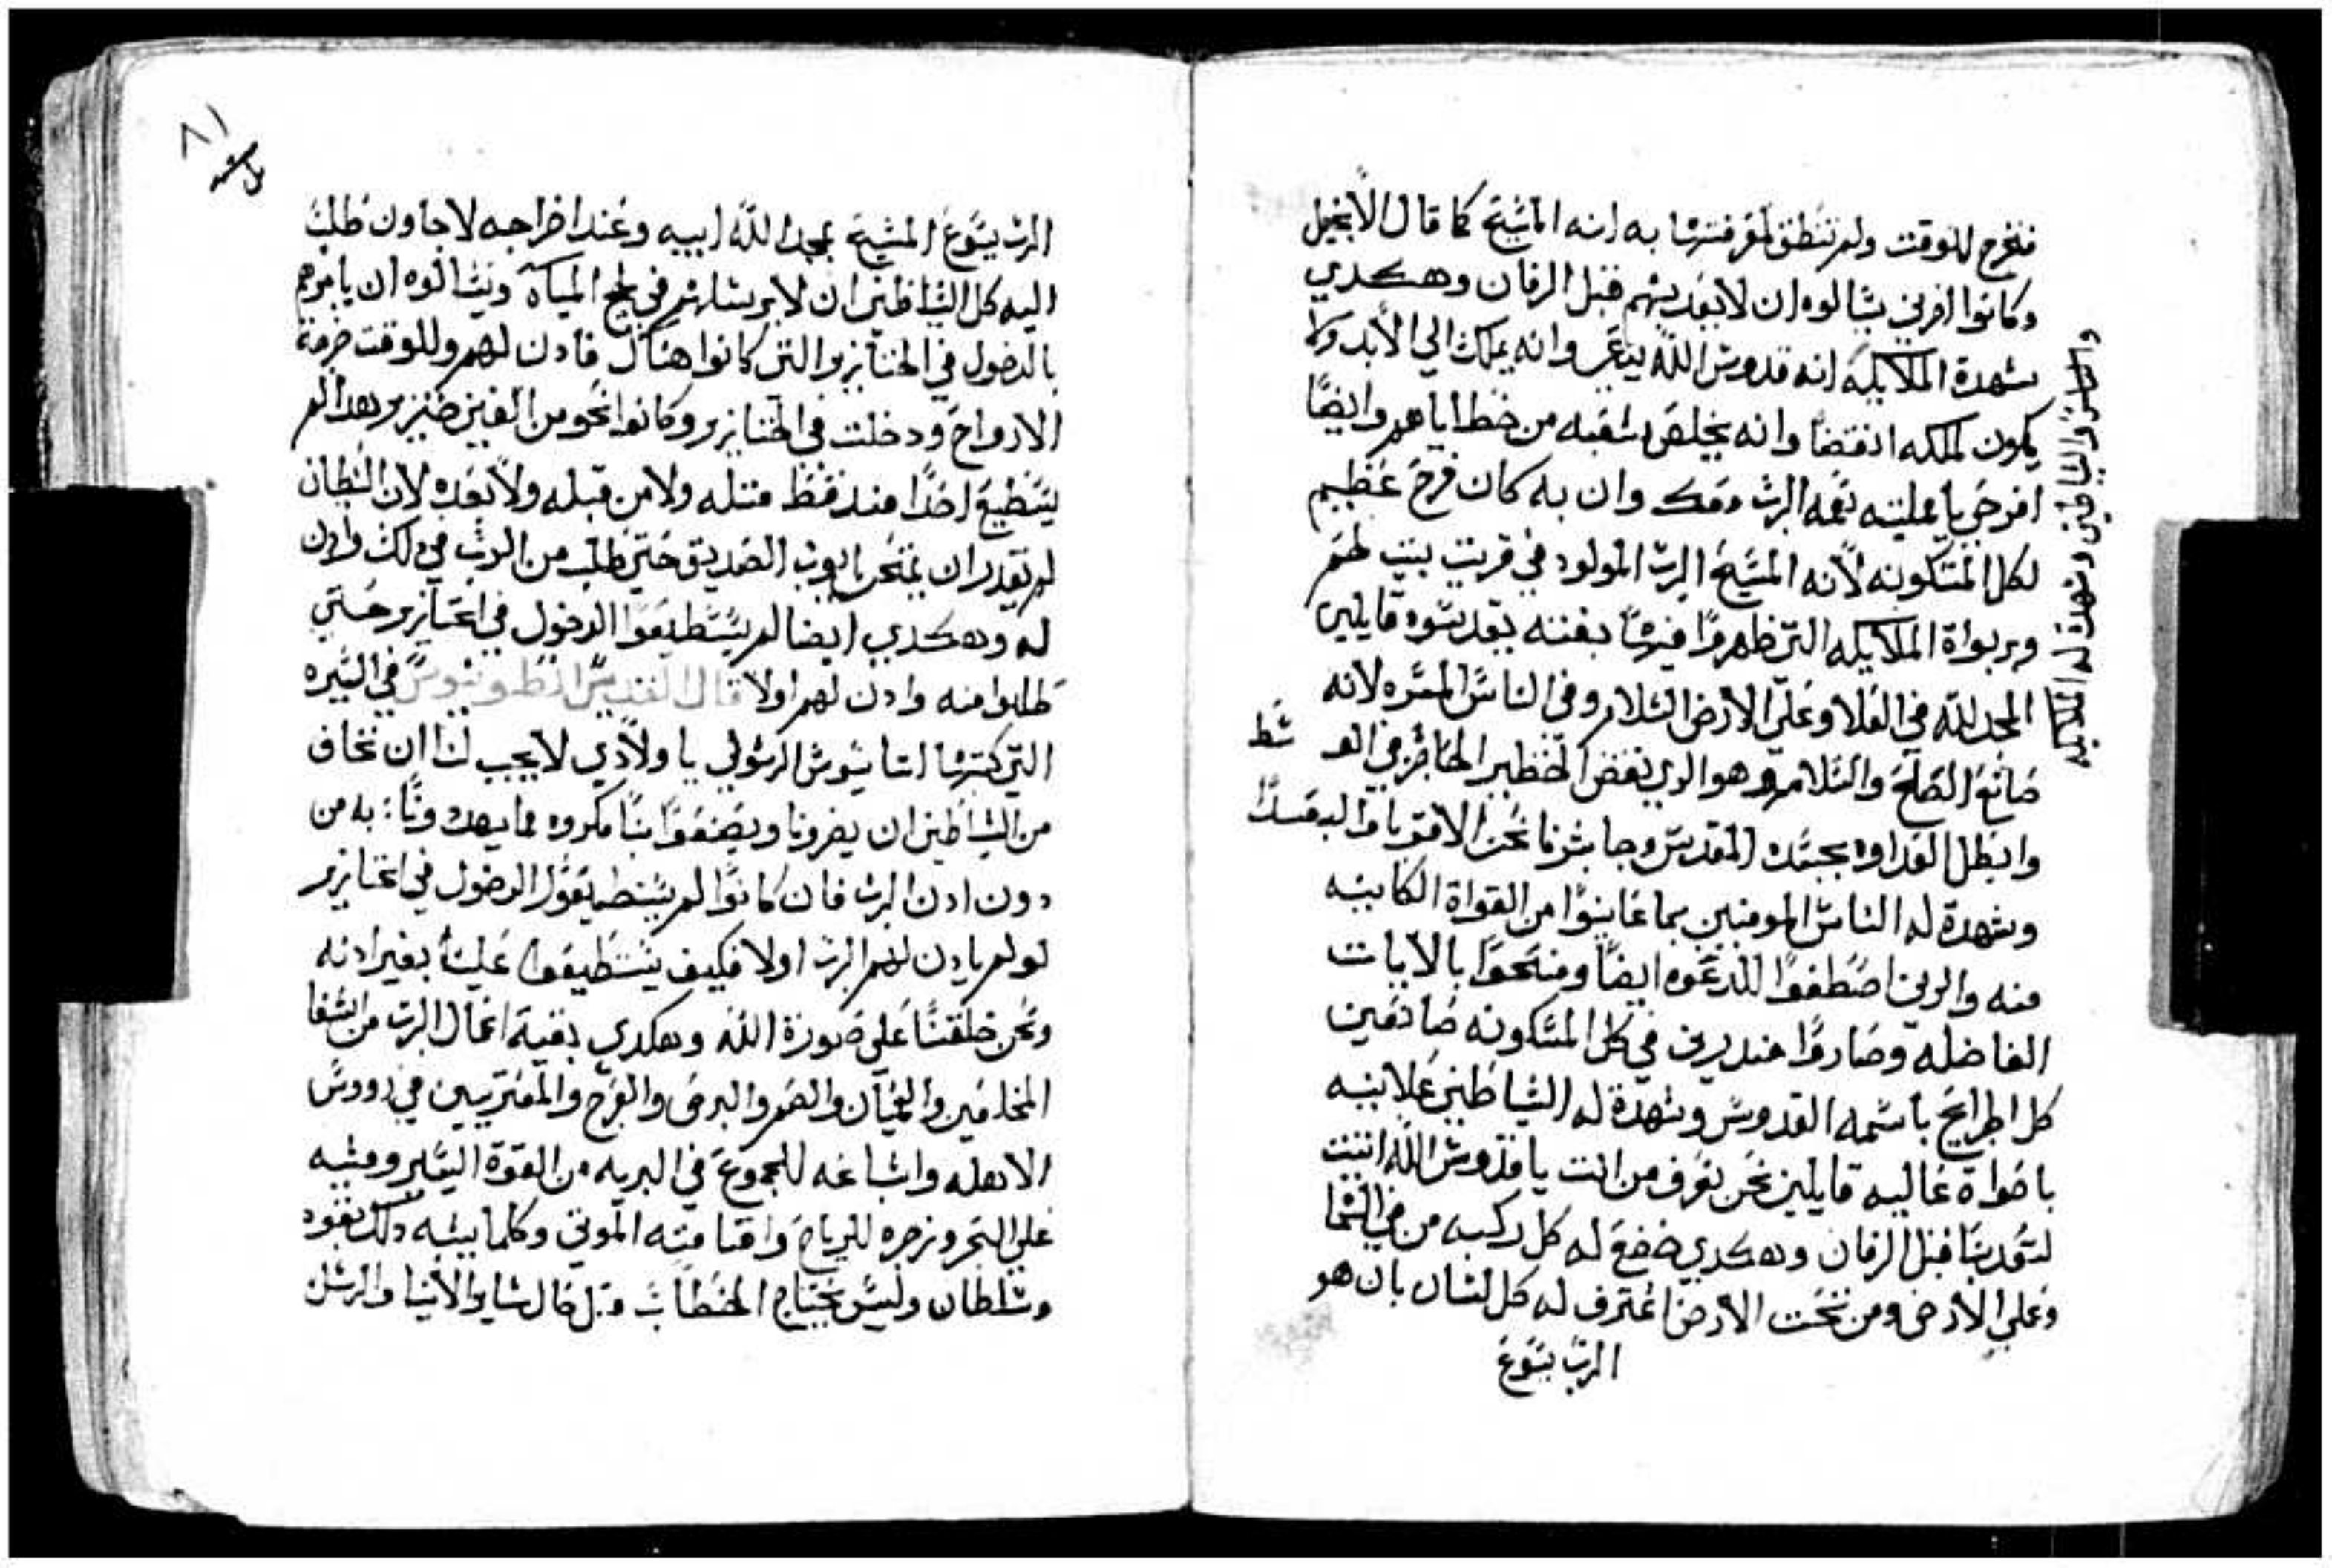 فتخرج للوقت ولم تنطق لمعرفتها به انه المسيح كما قال الانجيل
وكانوا اخرين يسالوه ان لا يعذبهم قبل الزمان وهكدي
شهدة الملايكه انه قدوس الله وانه يملك الي الابد ولا
يكون لملكه انقضا وانه يخلص شعبه من خطاياهم وايضا
افرحي يا ممليه نعمه الرب معك وان به كان فرح عظيم
لكل المسكونه لانه المسيح الرب المولود في قريت بيت لحم
وربواة الملايكه التي ظهروا بغته يقدسوه قايلين
المجد لله في العلا وعلي الارض السلام وفي الناس المسره لانه
صانع الصلح والسلام وهو الدي نقض الحاجز في الوسط
وابطل العداوه بجسده المقدس وجا بشرنا نحن الاقربا والبعدا
وشهدة له الناس المومنين بما عاينوا من القواة الكاينه
منه والدين اصطفوا للدعوه ايضا ومنحوا بالايات
الفاضله وصاروا مندرين في كل المسكونه صادقين
كل الجرايح باسمه القدوس وشهدة له الشياطين علانيه
باصواة عاليه قايلين نحن نعرف من انت يا قدوس الله اتيت
لتعدبنا قبل الزمان وهكدي خضع له كل ركبه من في السما
وعلي الارض ومن تحت الارض اعترف له كل لسان بان هو
الرب يسوع
والشياطين وشهدة له الملايكه
٨١
الرب يسوع المسيح لمجد الله ابيه وعند اخراجه لاجاون طلب
اليه كل الشياطين ان لا يرسلهم في لجج المياه وسالوه ان يامرهم
بالدخول في الخنازير التي كانوا هناك فادن لهم وللوقت خرجة
الارواح ودخلت في الخنازير وكانوا نحو من الفين خنزير وهدا لم
يستطيع احدا مند قط مثله ولا من قبله ولا بعده لان الشيطان
لم يقدر ان يمتحن ايوب الصديق حتي طلب من الرب في دلك وادن
له وهكدي ايضا لم يستطيعوا الدخول في الخنازير حتي
طلبوا منه وادن لهم اولا قال القديس انطونيوس في السيره
التي كتبها اتناسيوس الرسولي يا ولادي لا يجب لنا ان نخاف
من الشياطين ان يضرونا ويصنعوا بنا مكروه مما يهددونا به من
دون ادن الرب فان كانوا لم يستطيعوا الدخول في الخنازير
لو لم يادن لهم الرب اولا فكيف يستطيعوا علينا بغير ادنه
ونحن خلقتنا علي صورة الله وهكدي بقية اعمال الرب من الشفا
المخلعين والعميان والصم والبرص والعرج والمعتريين في رووس
الاهله واشباعه للجموع في البريه من القوة اليسير ومشيه
علي البحر وزجره للرياح واقامته الموتي وكلما يشبه دلك بقوه
وسلطان وليس يحتاج الخطاب مثل حال ساير الانبيا والرسل